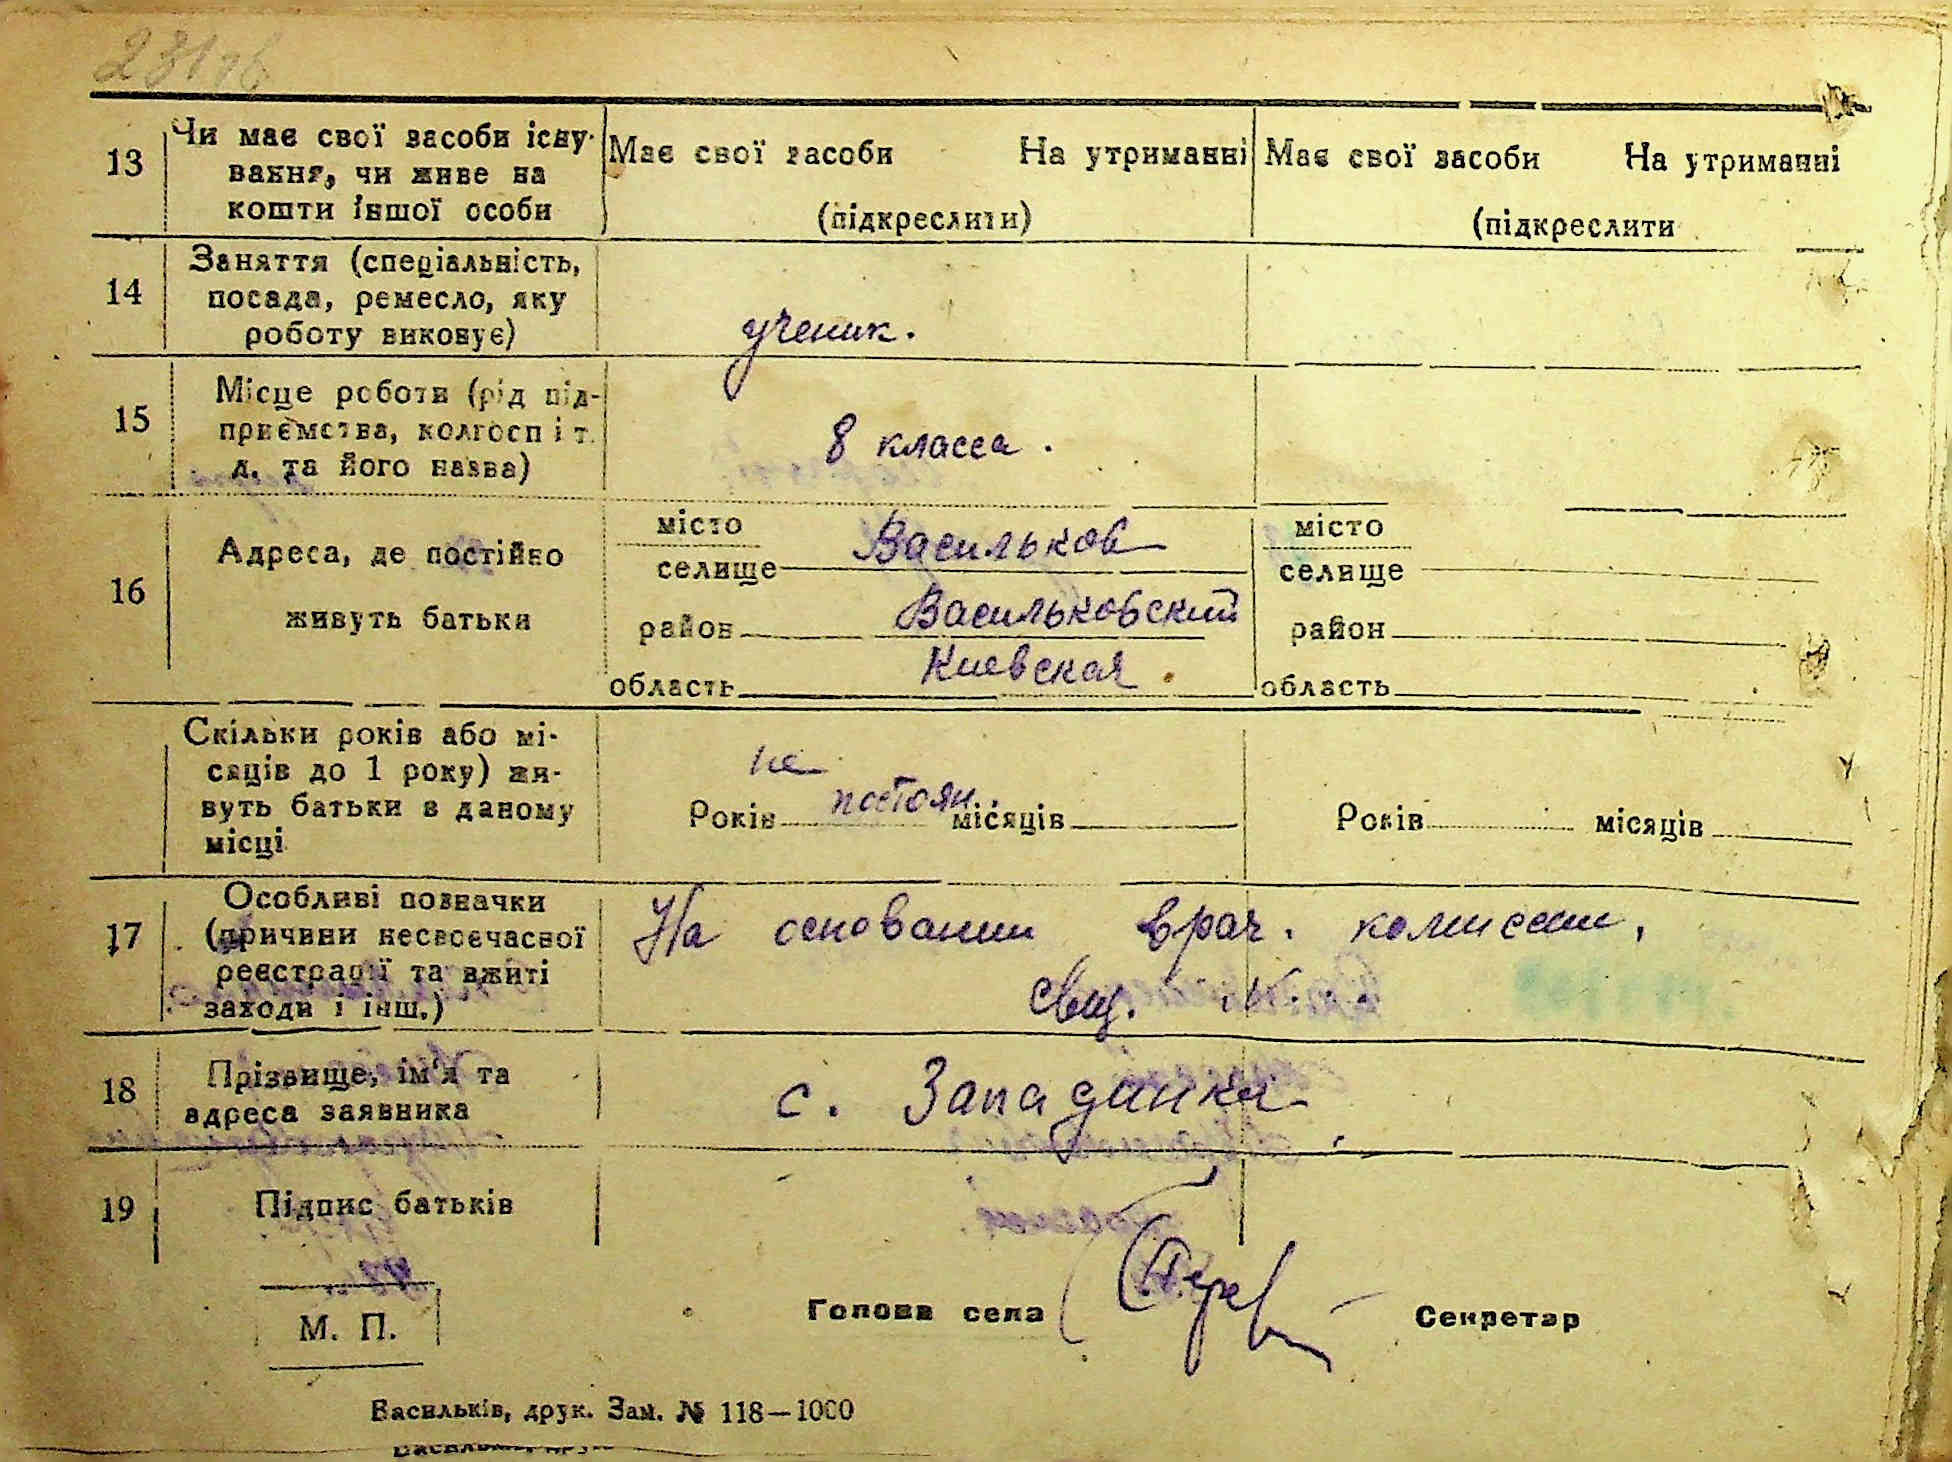 231 зв
13 Чи має свої засоби існу-
вання, чи живе на
кошти іншої особи
Має свої засоби На утриманні
(підкреслити)
Має свої засоби На утриманні
(підкреслити
14 Заняття (спеціальність,
посада, ремесло, яку
роботу виконує)
ученик.
15 Місце роботи (рід під-
приємства, колгосп і т.
д. та його назва)
8 класса.
16 Адреса, де постійно
живуть батьки
місто
селище Васильков
район Васильковский
область Киевская.
місто
селище
район
область
Скільки років або мі-
сяців до 1 року) жи-
вуть батьки в даному
місці
не
Років постоян. місяців
Років місяців
17 Особливі позначки
(причини несвоєчасної
реєстрації та вжиті
заходи і інш.)
На основании врач. комиссии,
18 Прізвище, ім'я та
адреса заявника
с. Западинка
19 Підпис батьків
М. П.
Голова села
Секретар
Васильків, друк. Зам. № 118—1000